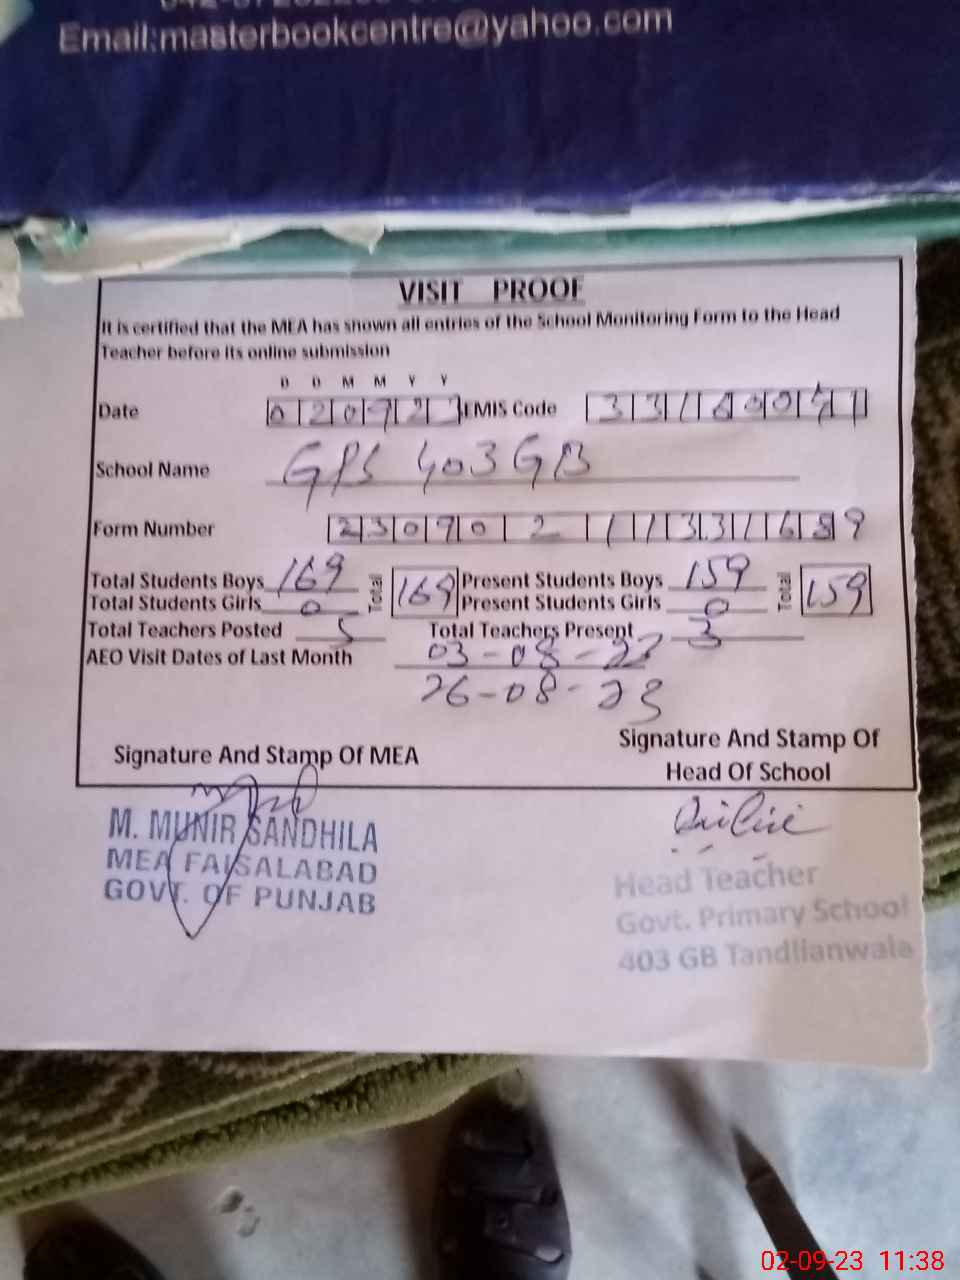 Email:masterbookcentre@yahoo.com
VISIT PROOF
It is certified that the MEA has shown all entries of the School Monitoring Form to the Head
Teacher before its online submission
D D M M Y Y
Date 020923 EMIS Code 33160071
School Name GPS 403 GB
Form Number 230902113311689
Total Students Boys 169 Total 169 Present Students Boys 159 Total 159
Total Students Girls 0 Present Students Girls 0
Total Teachers Posted 5 Total Teachers Present 3
AEO Visit Dates of Last Month 03-08-23
26-08-23
Signature And Stamp Of MEA
Signature And Stamp Of
Head Of School
M. MUNIR SANDHILA
MEA FAISALABAD
GOVT. OF PUNJAB
Head Teacher
Govt. Primary School
403 GB Tandlianwala
02-09-23 11:38